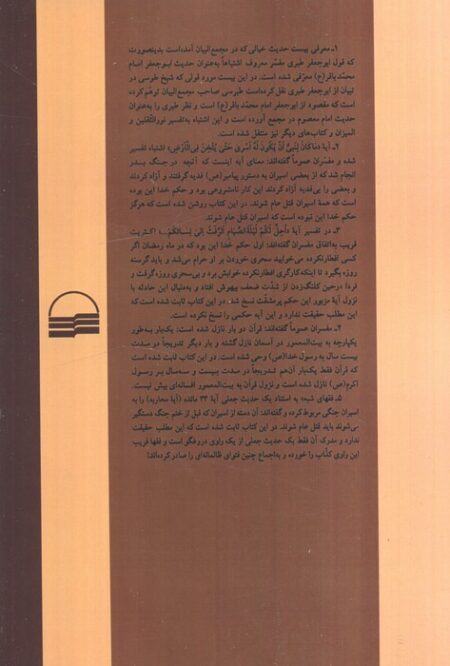 ۱ـ معرفی بیست حدیث خیالی که در مجمع‌البیان آمده‌است بدینصورت
که قول ابوجعفر طبری مفسّر معروف اشتباهاً به‌عنوان حدیث ابوجعفر امام
محمّد باقر(ع) معرّفی شده است. در این بیست مورد قولی که شیخ طوسی در
تبیان از ابوجعفر طبری نقل کرده‌است طبرسی صاحب مجمع‌البیان توهّم کرده
است که مقصود از ابوجعفر امام محمّد باقر(ع) است و نظر طبری را به‌عنوان
حدیث امام معصوم در مجمع آورده است و این اشتباه به‌تفسیر نورالثّقلین و
المیزان و کتاب‌های دیگر نیز منتقل شده است.
۲ـ آیهٔ «ماکانَ لِنَبِیٍّ أَنْ یَکُونَ لَهُ أَسْری حَتّی یُثْخِنَ فِی‌الْأَرْضِ» اشتباه تفسیر
شده و مفسّران عموماً گفته‌اند: معنای آیه اینست که آنچه در جنگ بدر
انجام شد که از بعضی اسیران به دستور پیامبر(ص) فدیه گرفتند و آزاد کردند
و بعضی را بی‌فدیه آزاد کردند این کار نامشروعی بود و حکم خدا این بوده
است که همهٔ اسیران قتل عام شوند. در این کتاب روشن شده است که هرگز
حکم خدا این نبوده است که اسیران قتل عام شوند.
۳ـ در تفسیر آیهٔ «أُحِلَّ لَکُمْ لَیْلَةَ الصِّیامِ الرَّفَثُ اِلیٰ نِسائِکُمْ...» اکثریت
قریب به‌اتفاق مفسران گفته‌اند: اول حکم خدا این بود که در ماه رمضان اگر
کسی افطارنکرده می‌خوابید سحری خوردن بر او حرام می‌شد و باید گرسنه
روزه بگیرد تا اینکه کارگری افطارنکرده خوابش برد و بی‌سحری روزه گرفت و
فردا درحین کلنگ‌زدن از شدّت ضعف بیهوش افتاد و به‌دنبال این حادثه با
نزول آیهٔ مزبور این حکم پرمشقّت نسخ شد. در این کتاب ثابت شده است که
این مطلب حقیقت ندارد و این آیه حکمی را نسخ نکرده است.
۴ـ مفسران عموماً گفته‌اند: قرآن دو بار نازل شده است: یک‌بار به‌طور
یکپارچه به بیت‌المعمور در آسمان نازل گشته و بار دیگر تدریجاً در مدت
بیست سال به رسول خدا(ص) وحی شده است. در این کتاب ثابت شده است
که قرآن فقط یک‌بار آن‌هم تدریجاً در مدت بیست و سه‌سال بر رسول
اکرم(ص) نازل شده است و نزول قرآن به بیت‌المعمور افسانه‌ای بیش نیست.
۵ـ فقهای شیعه به استناد یک حدیث جعلی آیهٔ ۳۳ مائده (آیهٔ محاربه) را به
اسیران جنگی مربوط کرده و گفته‌اند: آن دسته از اسیران که قبل از ختم جنگ دستگیر
می‌شوند باید قتل عام شوند. در این کتاب ثابت شده است که این مطلب حقیقت
ندارد و مدرک آن فقط یک حدیث جعلی از یک راوی دروغگو است و فقها فریب
این راوی کذّاب را خورده و به‌اجماع چنین فتوای ظالمانه‌ای را صادر کرده‌اند!